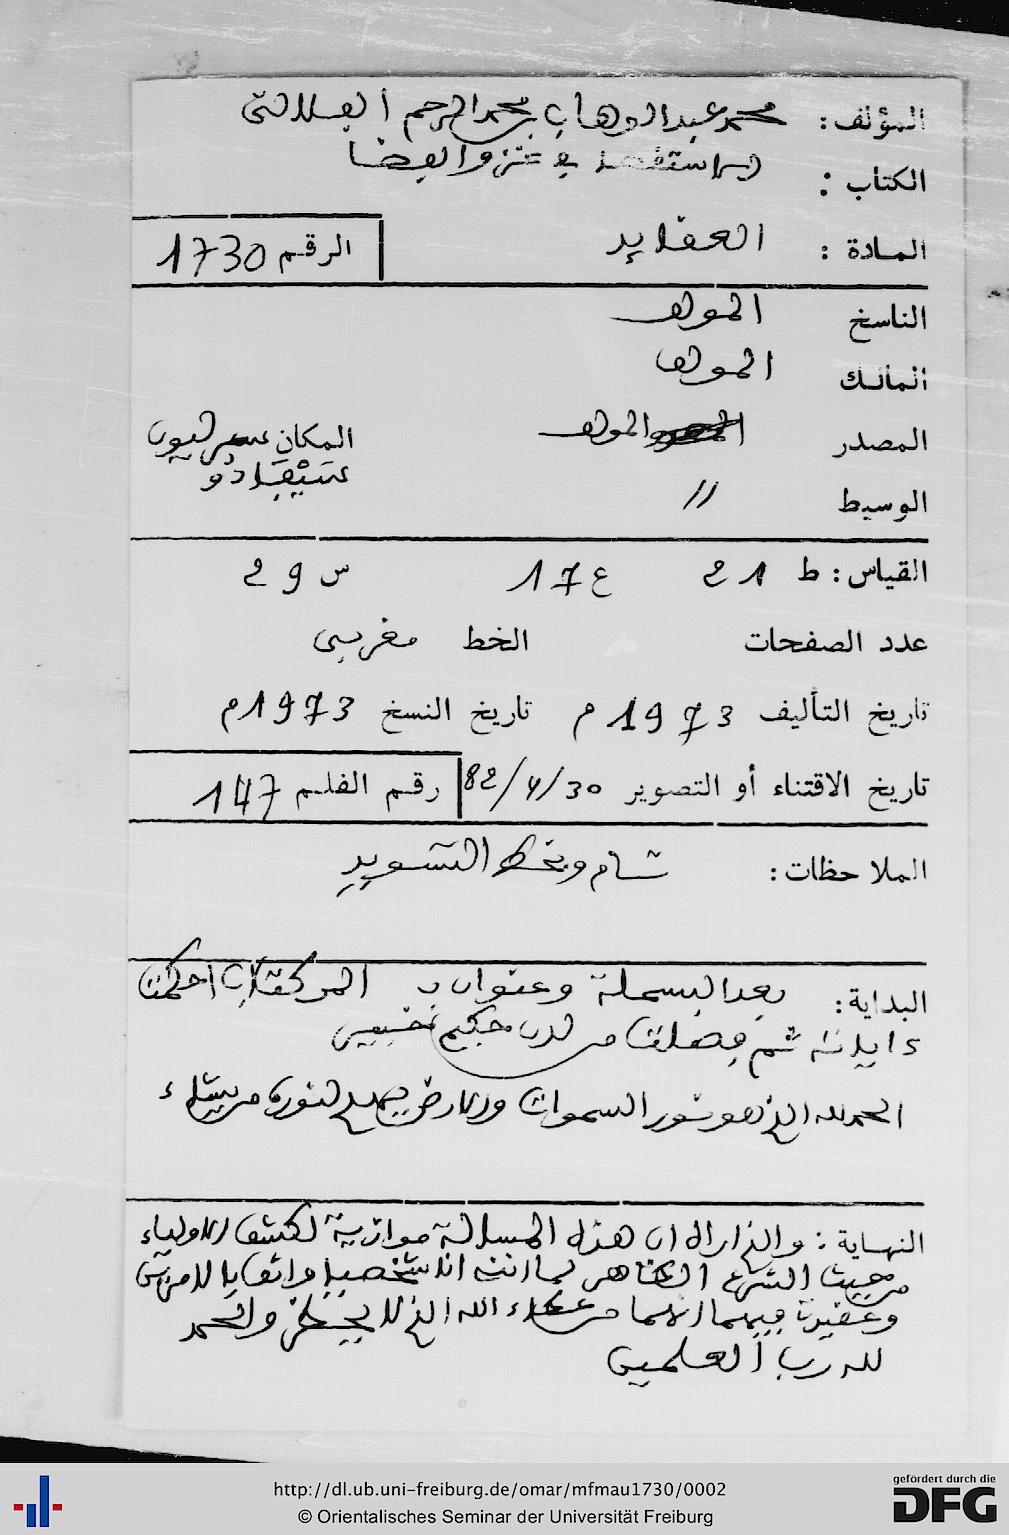 المؤلف: محمد عبد الوهاب بن محمد الرحيم الفلالتى
الكتاب: و القضا
المادة: العقايد
الرقم 1730
الناسخ المولف
المالك المولف
المصدر المولف
المكان
الوسيط //
القياس: ط 21 ع 17 س 29
عدد الصفحات الخط مغربي
تاريخ التأليف 1973 م تاريخ النسخ 1973 م
تاريخ الاقتناء أو التصوير 30/4/82 رقم الفلم 147
الملاحظات: تام وبخط التسويد
البداية: بعد البسملة وعنوان الر كتاب احكمت
ءايلته ثم فصلت من لدن حكيم خبير
الحمد لله الذي هو نور السموات والارض يهدي لنوره من يشاء
النهاية: والذي اراه ان هذه المسالة موازية لكشف الاولياء
من حيث الشرع الظاهر لما اننى انا شخصيا واثق بالامرين
وعقيدتى فيهما انهما من عطاء الله الذي لا يحظر والحمد
لله رب العلمين
http://dl.ub.uni-freiburg.de/omar/mfmau1730/0002
© Orientalisches Seminar der Universität Freiburg
gefördert durch die
DFG